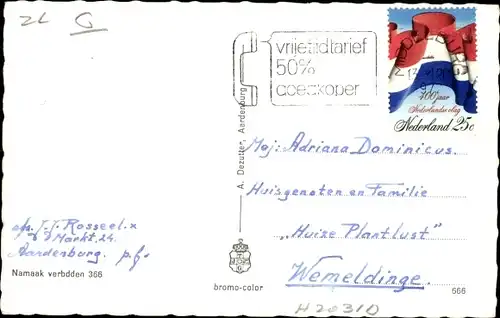 ZL G
vrijetijdtarief
50%
goedkoper
MIDDELBURG
400 jaar
Nederlandse vlag
Nederland 25c
A. Dezutter, Aardenburg
Mej: Adriana Dominicus.
Huisgenoten en Familie
„Huize Plantlust"
Wemeldinge.
J. J. Rosseel.x
Markt. 24.
Aardenburg. p.f.
Namaak verbdden 366
bromo-color
566
H20310